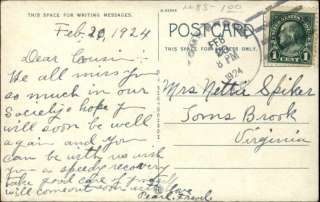 THIS SPACE FOR WRITING MESSAGES.
POSTCARD
THIS SPACE FOR ADDRESS ONLY.
Feb. 20, 1924
Dear Cousin:
We all miss you
so much in our
Society & hope you
will soon be well
again and you
can be with us wish
you a speedy recovery
take good care of yourself
will come out soon
Love
Pearl
FEB
8 PM
1924
1 CENT 1
Mrs Nettie Spiker
Toms Brook
Virginia